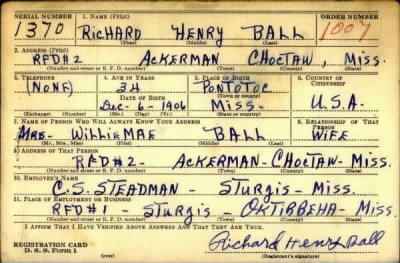 SERIAL NUMBER 1. NAME (Print) ORDER NUMBER
1370 RICHARD HENRY BALL 1007
(First) (Middle) (Last)
2. ADDRESS (Print)
RFD#2 ACKERMAN CHOCTAW, MISS.
(Number and street or R. F. D. number) (Town) (County) (State)
3. TELEPHONE 4. AGE IN YEARS 5. PLACE OF BIRTH 6. COUNTRY OF CITIZENSHIP
(NONE) 34 PONTOTOC
DATE OF BIRTH (Town or county)
DEC-6-1906 MISS. U.S.A.
(Exchange) (Number) (Mo.) (Day) (Yr.) (State or country)
7. NAME OF PERSON WHO WILL ALWAYS KNOW YOUR ADDRESS 8. RELATIONSHIP OF THAT PERSON
MRS- WILLIE MAE BALL WIFE
(Mr., Mrs., Miss) (First) (Middle) (Last)
9. ADDRESS OF THAT PERSON
RFD#2- ACKERMAN-CHOCTAW-MISS.
(Number and street or R. F. D. number) (Town) (County) (State)
10. EMPLOYER'S NAME
C.S. STEADMAN - STURGIS - MISS.
11. PLACE OF EMPLOYMENT OR BUSINESS
RFD#1 - STURGIS - OKTIBBEHA - MISS.
(Number and street or R. F. D. number) (Town) (County) (State)
I AFFIRM THAT I HAVE VERIFIED ABOVE ANSWERS AND THAT THEY ARE TRUE.
REGISTRATION CARD Richard Henry Ball
D. S. S. Form 1 (Registrant's signature)